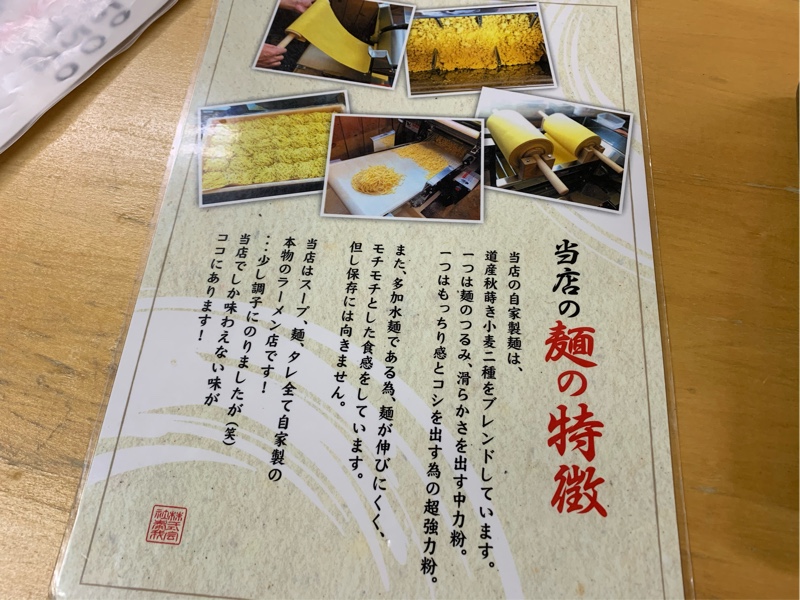 当店の麺の特徴
当店の自家製麺は、
道産秋蒔き小麦二種をブレンドしています。
一つは麺のつるみ、滑らかさを出す中力粉。
一つはもっちり感とコシを出す為の超強力粉。
また、多加水麺である為、麺が伸びにくく、
モチモチとした食感をしています。
但し保存には向きません。
当店はスープ、麺、タレ全て自家製の
本物のラーメン店です!
・・・少し調子にのりましたが(笑)
当店でしか味わえない味が
ココにあります!